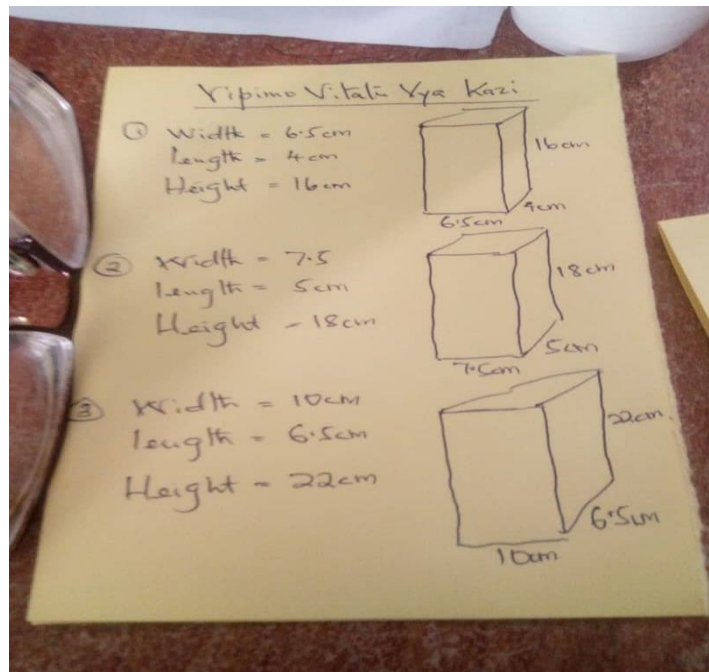 Vipimo Vitatu Vya Kazi
① Width = 6.5cm
Length = 4cm
Height = 16cm
16cm
4cm
6.5cm
② Width = 7.5
Length = 5cm
Height = 18cm
18cm
5cm
7.5cm
③ Width = 10cm
Length = 6.5cm
Height = 22cm
22cm.
6.5cm
10cm